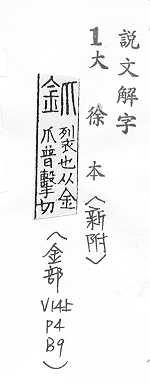 說文解字
1大徐本〈新附〉
釽
裂也从金
爪普擊切
〈金部
V14上
P4
B9〉